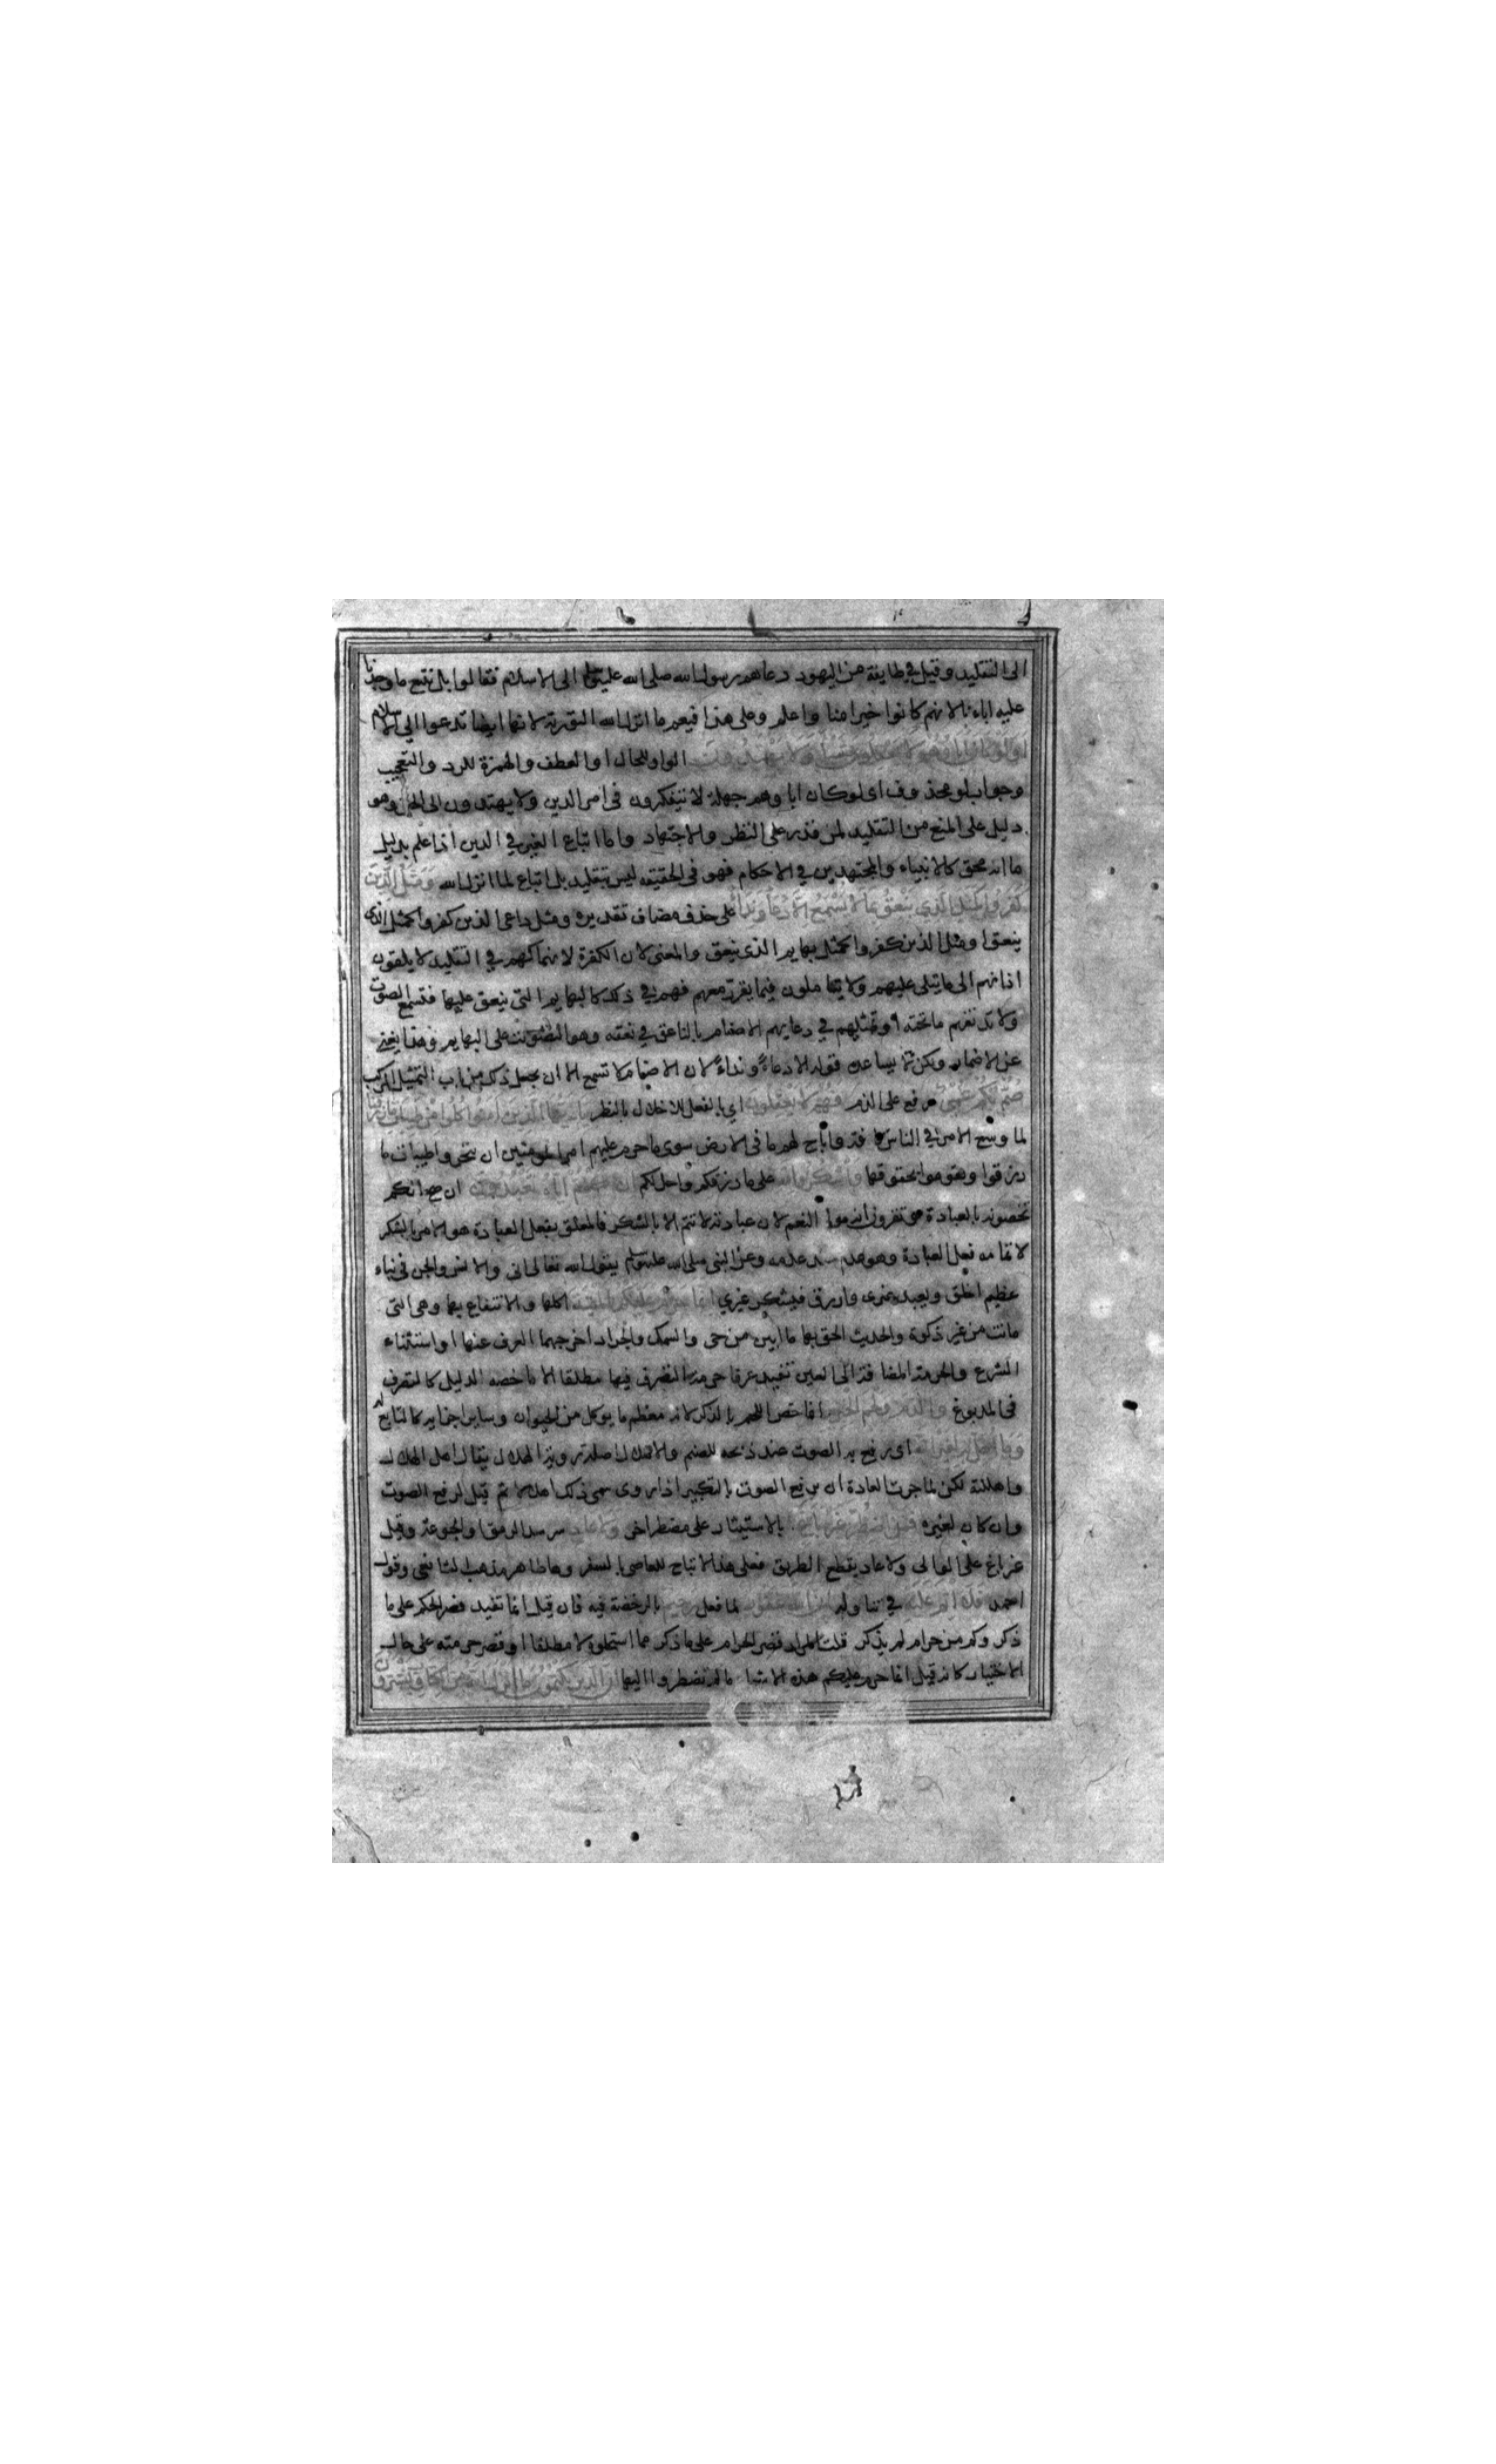 الى التقليد وقيل في طايفة من اليهود دعاهم رسول الله صلى الله عليه وسلم الى الاسلام فقالوا بل نتبع ما وجدنا
عليه اباءنا لانهم كانوا خيرا منا واعلم وعلى هذا فيعم ما انزل الله التورية لانها ايضا تدعوا الى الاسلام
اولو كان اباؤهم لا يعقلون شيئا ولا يهتدون الواو للحال او العطف والهمزة للرد والتعجيب
وجواب لو محذوف اى لو كان اباوهم جهلة لا يتفكرون فى امر الدين ولا يهتدون الى الحق وهو
دليل على المنع من التقليد لمن قدر على النظر والاجتهاد واما اتباع الغير في الدين اذا علم بدليل
ما انه محق كالانبياء والمجتهدين في الاحكام فهو فى الحقيقه ليس بتقليد بل اتباع لما انزل الله ومثل الذين
كفروا كمثل الذي ينعق بما لا يسمع الا دعاء ونداء على حذف مضاف تقديره ومثل داعى الذين كفروا كمثل الذى
ينعق او مثل الذين كفروا كمثل بهايم الذى ينعق والمعنى لان الكفرة لانهماكهم في التقليد لا يلقون
اذانهم الى ما يتلى عليهم ولا يتاملون فيما يقرر معهم فهم في ذلك كالبهايم التى ينعق عليها فتسمع الصوت
ولا تدرى ما تحته وتمثيلهم في دعايهم الاصنام بالناعق في نعقه وهو التصويت على البهايم وهذا يغنى
عن الاضمار ولكن لا يساعده قوله الا دعاء ونداء لان الاصنام لا تسمع الا ان يجعل ذلك من باب التمثيل المركب
صم بكم عمى رفع على الذم فهم لا يعقلون اي بالفعل للاخلال بالنظر يا ايها الذين امنوا كلوا من طيبات ما رزقناكم
لما وسع الامر في الناس كافة واباح لهم ما فى الارض سوى ما حرم عليهم امر المومنين ان يتحروا طيبات ما
رزقوا ويقوموا بحقوقها واشكروا لله على ما رزقكم واحل لكم ان كنتم اياه تعبدون ان صح انكم
تخصونه بالعبادة وتقرون انه مولى النعم لان عبادته لا تتم الا بالشكر فالمعلق بفعل العبادة هو الامر بالشكر
لاتمامه فعل العبادة وهو عدم عند عدمه وعن النبى صلى الله عليه وسلم يقول الله تعالى انى والانس والجن فى نباء
عظيم اخلق ويعبد غيرى وارزق فيشكر غيري انما حرم عليكم الميتة اكلها والانتفاع بها وهى التى
ماتت من غير ذكوة والحديث الحق بها ما ابين من حى والسمك والجراد اخرجهما العرف عنها او استثناء
الشرع والحرمة المضافة الى العين تفيد عرفا حرمة التصرف فيها مطلقا الا ما خصه الدليل كالتصرف
فى المدبوغ والدم ولحم الخنزير انما خص اللحم بالذكر لانه معظم ما يوكل من الحيوان وساير اجزايه كالتابع له
وما اهل به لغير الله اى رفع به الصوت عند ذبحه للصنم والاهلال اصله روية الهلال يقال اهل الهلال
واهللته لكن لما جرت العادة ان يرفع الصوت بالتكبير اذا روى سمى ذلك اهلالا ثم قيل لرفع الصوت
وان كان لغيره فمن اضطر غير باغ بالاستيثار على مضطر اخر ولا عاد سد الرمق او الجوعة وقيل
غير باغ على الوالى ولا عاد بقطع الطريق فعلى هذا لا تباح للعاصى بالسفر وهو ظاهر مذهب الشافعى وقول
احمد فلا اثم عليه في تناوله ان الله غفور لما فعل رحيم بالرخصة فيه فان قيل انما تفيد قصر الحكم على ما
ذكر وكم من حرام لم يذكر قلت المراد قصر الحرام على ما ذكر مما استحلوه لا مطلقا او قصر حرمته على حال
الاختيار كانه قيل انما حرم عليكم هذه الاشيا ما لم تضطروا اليها ان الذين يكتمون ما انزل الله من الكتاب ويشترون